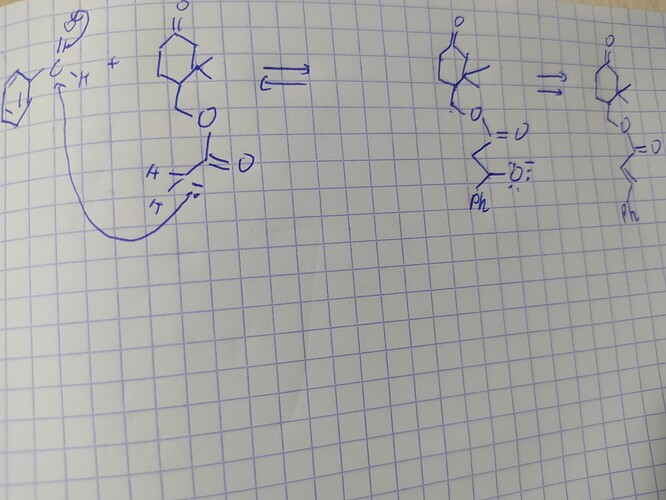 O
O
O
O
C
H
+
O
O
O
O
H
H
O
O
O
Ph
Ph